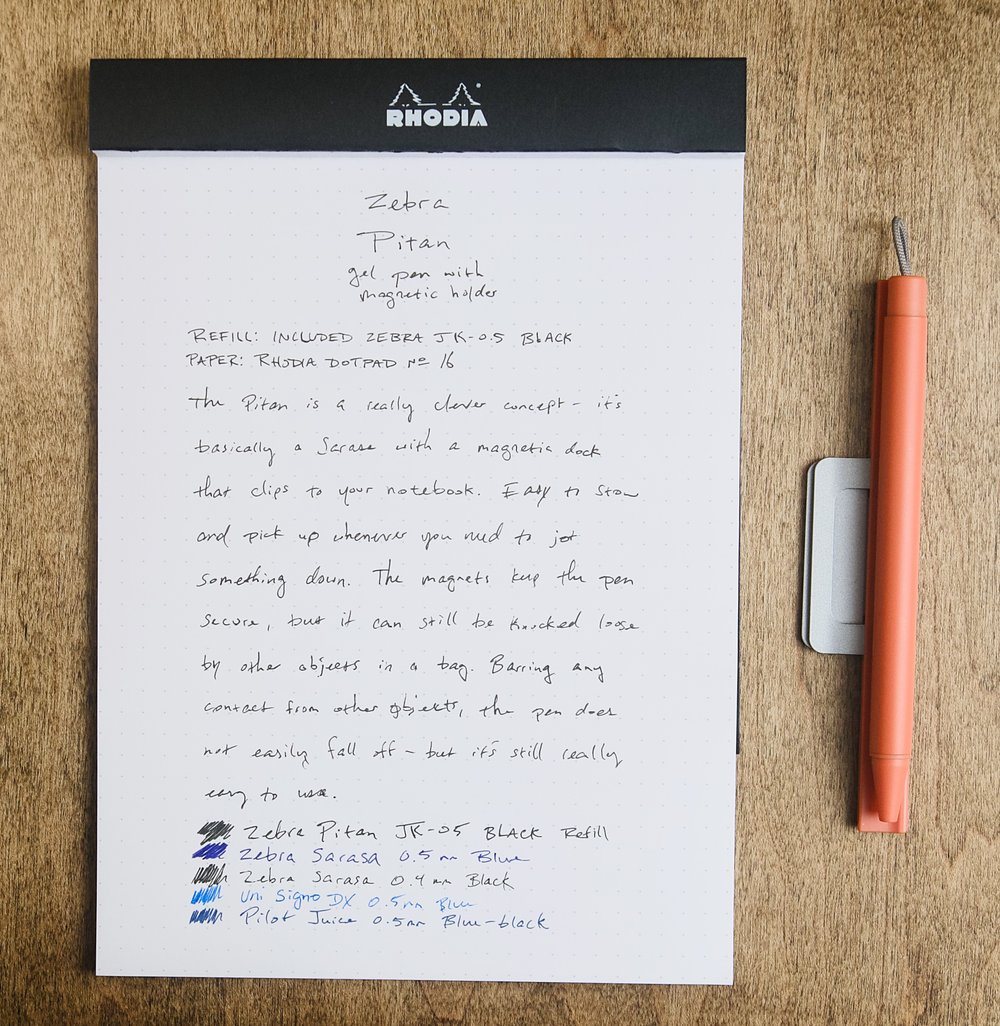 RHODIA
Zebra
Pitan
gel pen with
magnetic holder
REFILL: INCLUDED ZEBRA JK-0.5 BLACK
PAPER: RHODIA DOTPAD Nº 16
The Pitan is a really clever concept - it's
basically a Sarasa with a magnetic dock
that clips to your notebook. Easy to stow
and pick up whenever you need to jot
something down. The magnets keep the pen
secure, but it can still be knocked loose
by other objects in a bag. Barring any
contact from other objects, the pen does
not easily fall off - but it's still really
easy to use.
Zebra Pitan JK-05 BLACK Refill
Zebra Sarasa 0.5 mm Blue
Zebra Sarasa 0.4 mm Black
Uni Signo DX 0.5mm Blue
Pilot Juice 0.5mm Blue-black